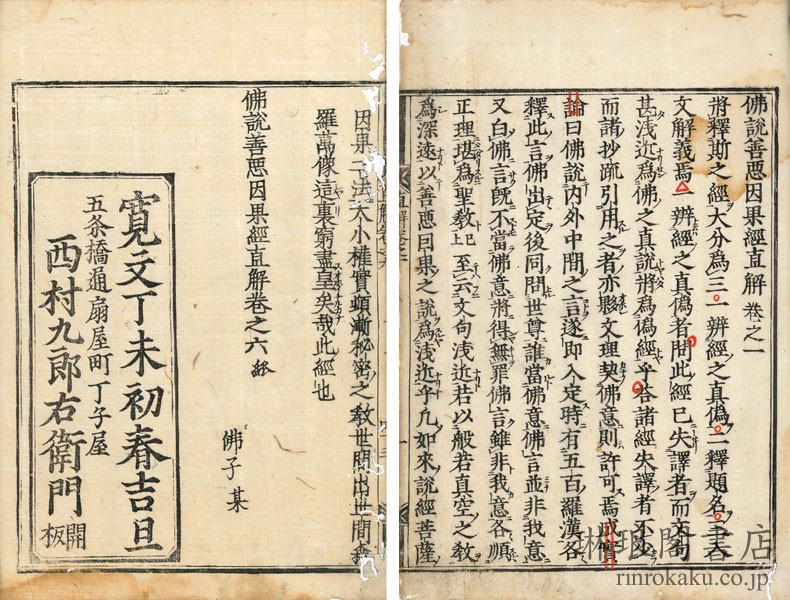 佛說善惡因果經直解 卷之一
將釋斯之經大分爲三一辨經之真僞二釋題名三入
文解義焉一辨經之真僞者問此經已失譯者而文句
甚浅近爲佛之真說將爲僞經乎荅諸經失譯者不少
而諸抄疏引用之者亦夥文理契佛意則許可焉成實
論曰佛說内外中間之言遂即入定時有五百羅漢各
釋此言佛出定後同問世尊誰當佛意佛言並非我意
又白佛言既不當佛意將得無罪佛言雖非我意各順
正理堪爲聖教已上至云文句浅近若以般若真空之教
爲深遠以善惡因果之說爲浅近乎凡如來說經菩薩
因果二法大小權實頓漸秘密之教世間出世間森
羅萬像這裏窮盡皇矣哉此經也
佛說善惡因果經直解卷之六 終
佛子某
寛文丁未初春吉旦
五条橋通扇屋町丁子屋
西村九郎右衛門 開板
琳琅閣書店
rinrokaku.co.jp